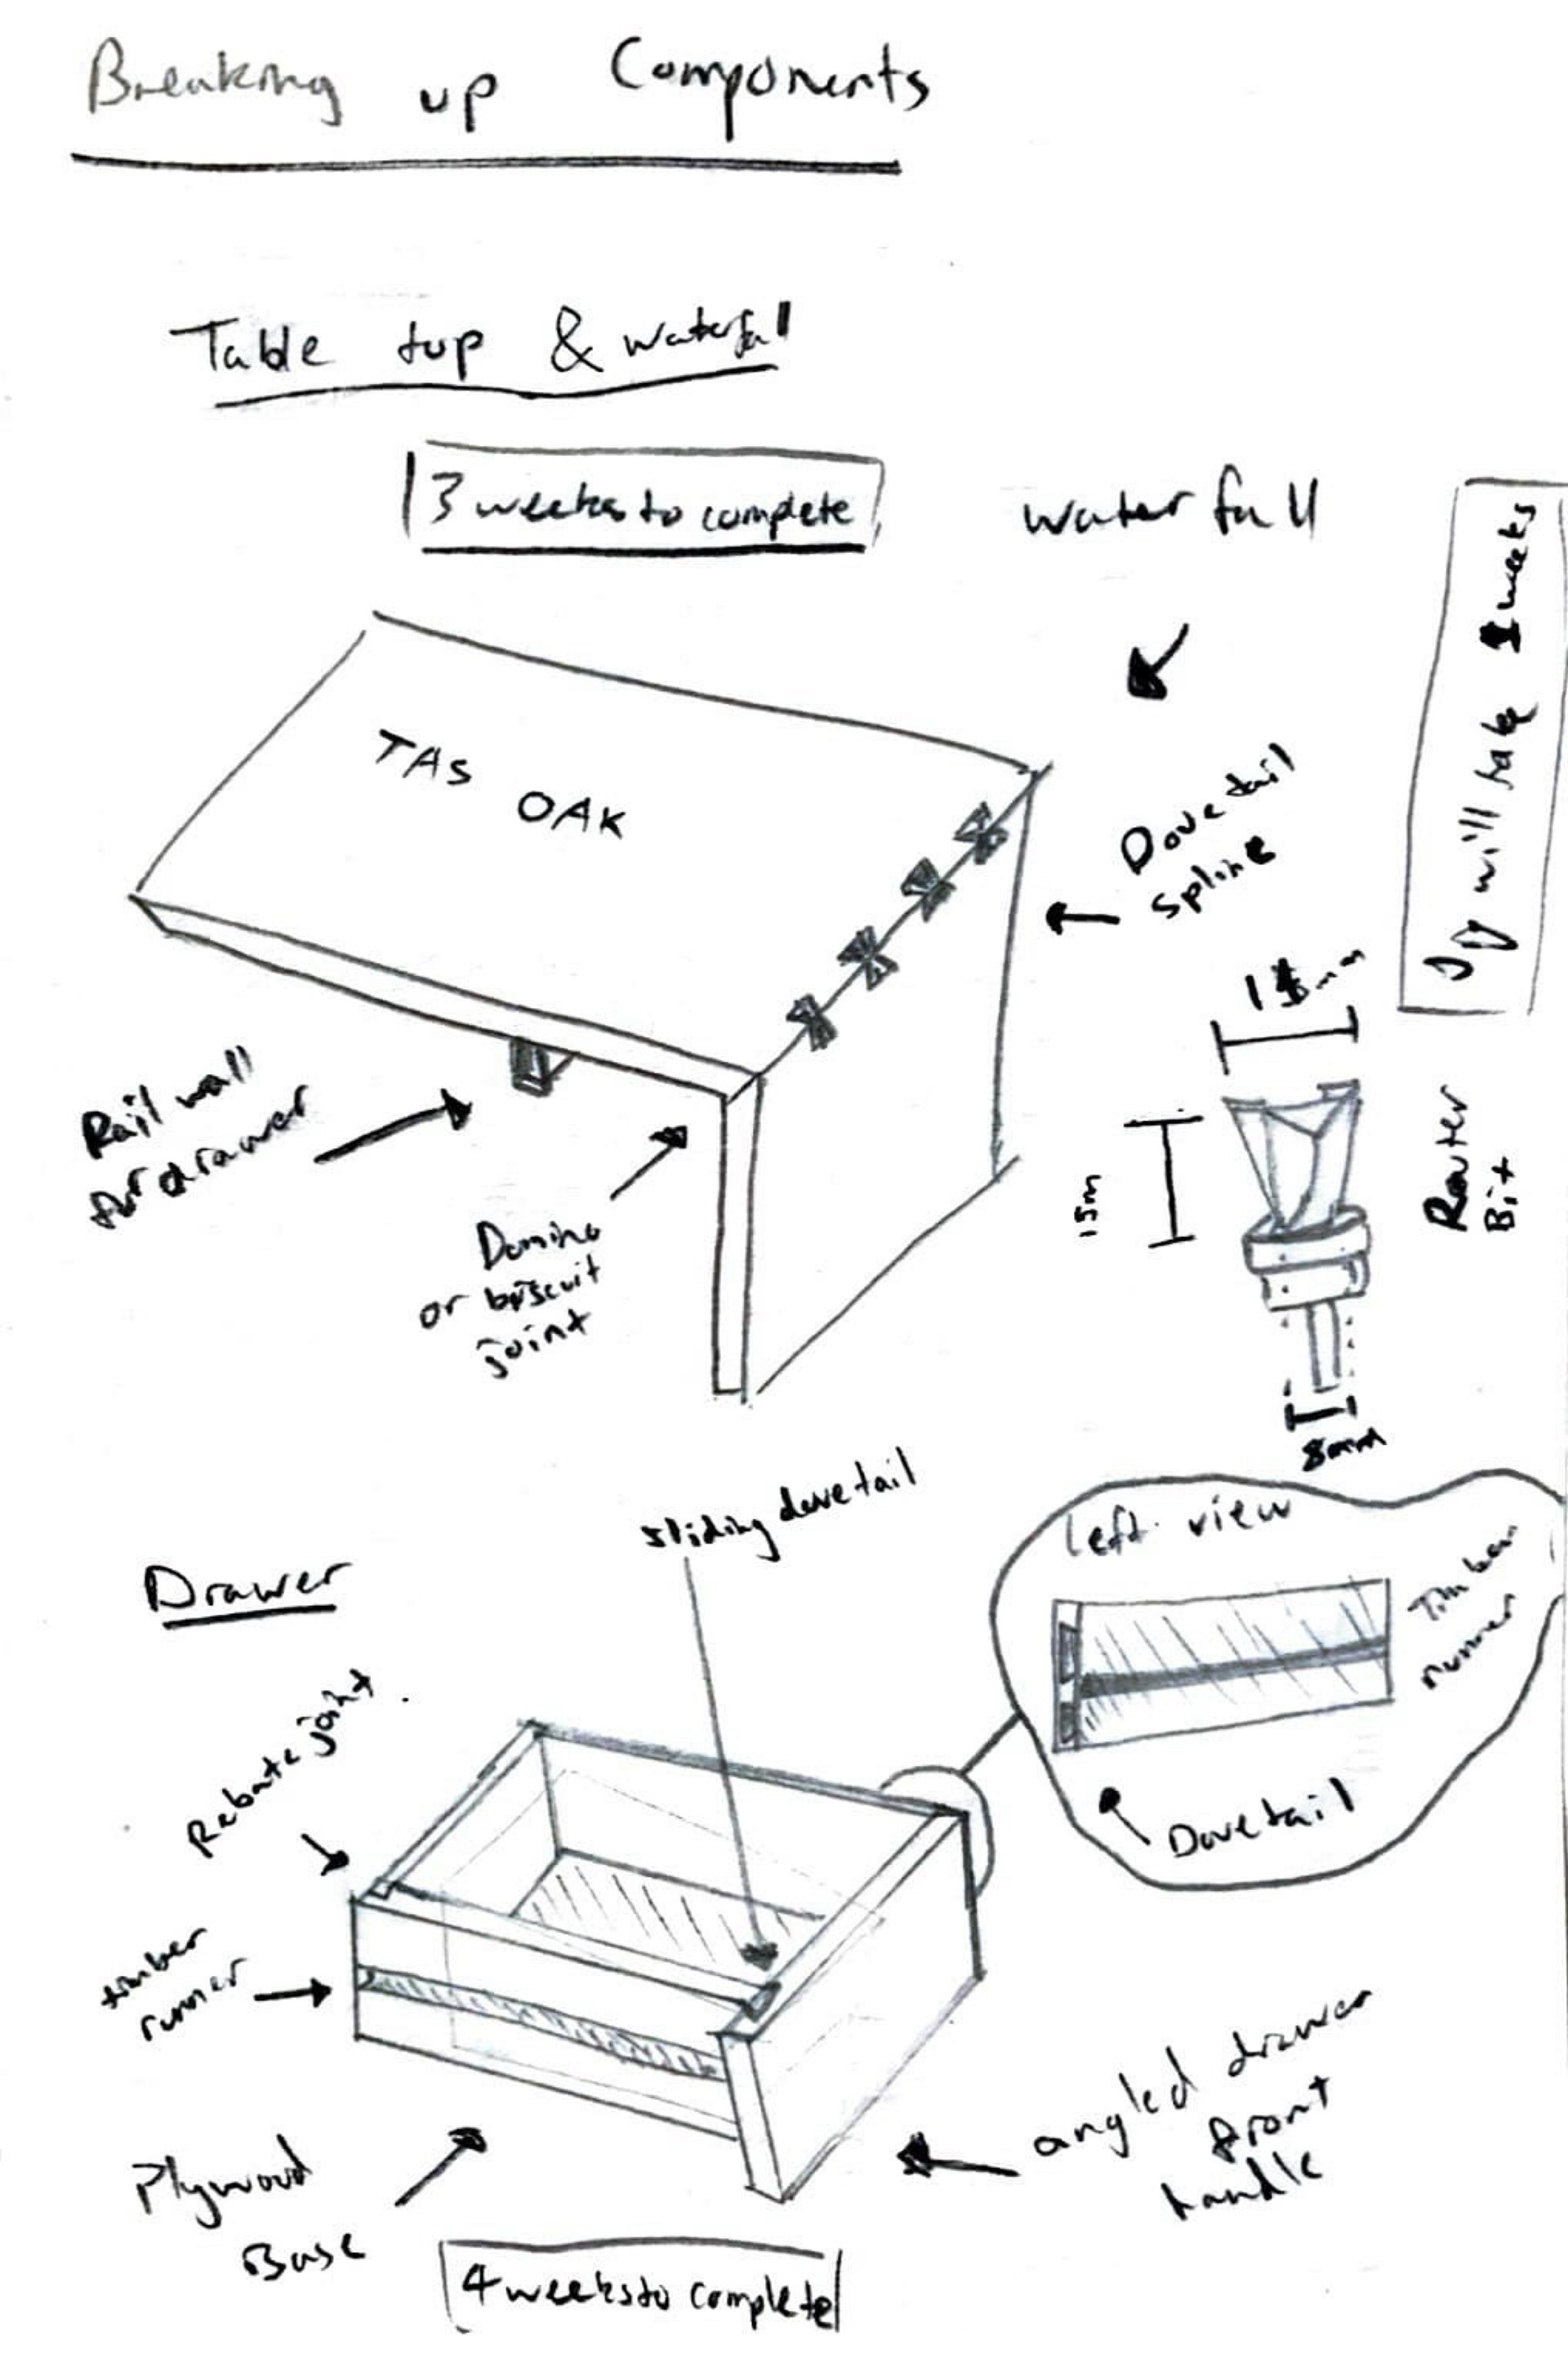 Breaking up Components
Table top & waterfall
3 weeks to complete
waterfall
will take weeks
TAS
OAK
Dovetail
spline
mm
15m
Router
Bit
8mm
Rail wall
for drawer
Domino
or biscuit
joint
sliding dovetail
left view
Timber
runner
Dovetail
Drawer
Rebate joint
timber
runner
Plywood
Base
angled drawer
front
handle
4 weeks to complete